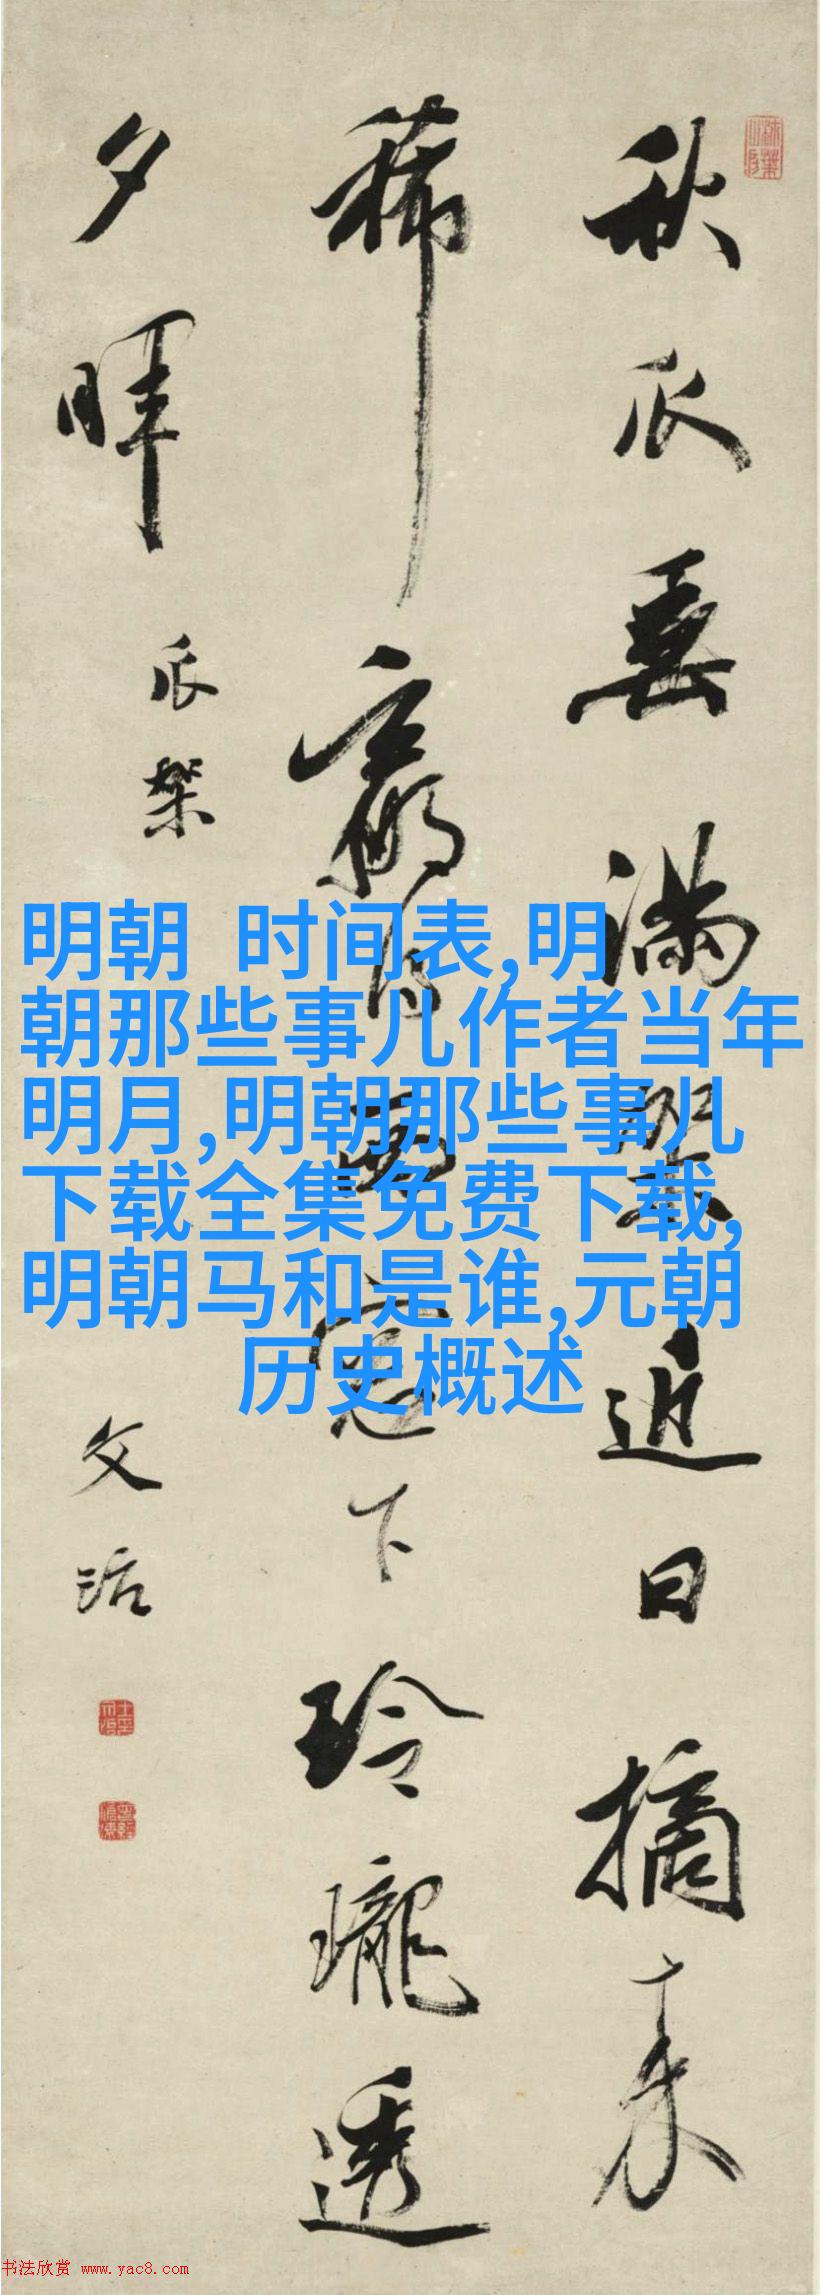 秋瓜垂滿架近日摘來
稀贏得西窓下玲瓏透
夕暉
瓜架
文治
明朝 时间表,明
朝那些事儿作者当年
明月,明朝那些事儿
下载全集免费下载,
明朝马和是谁,元朝
历史概述
书法欣赏 www.yac8.com